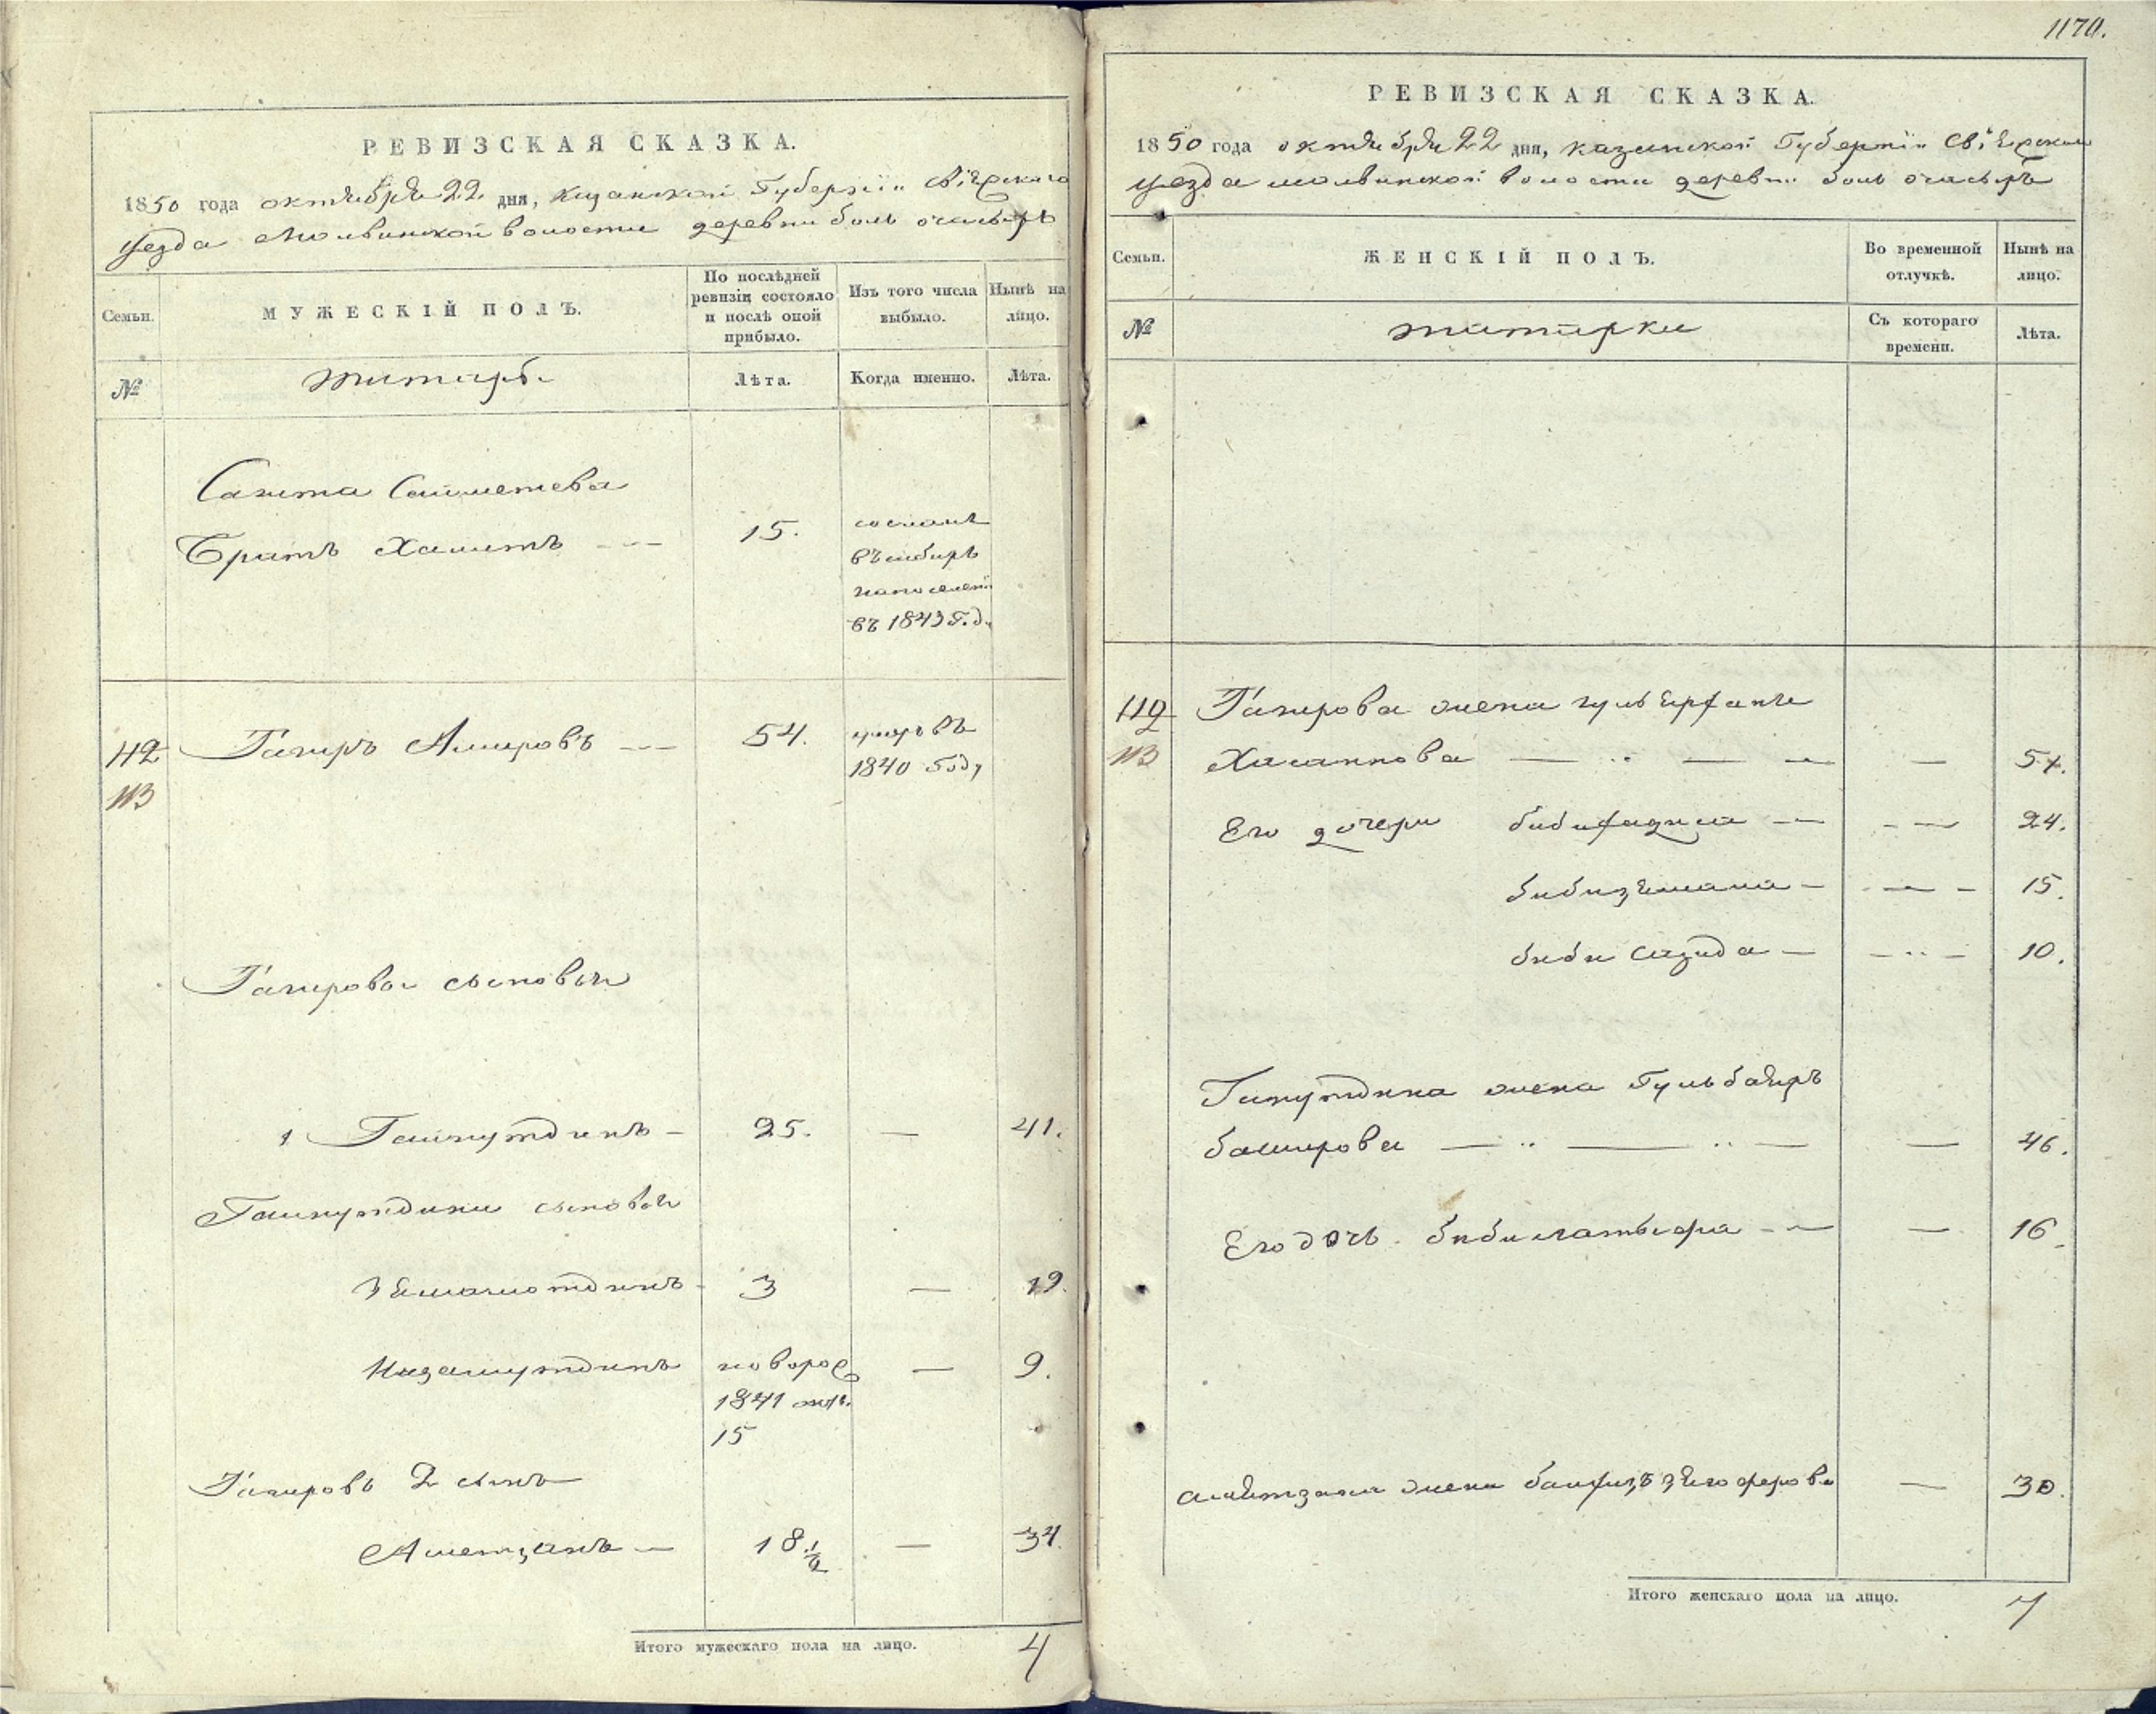 РЕВИЗСКАЯ СКАЗКА.
1850 года октября 22 дня, Казанской Губернiи Свiяжскаго
уезда Молвинской волости деревни боль очасыръ
Семьи.
МУЖЕСКІЙ ПОЛЪ.
По послѣдней ревизіи состояло и послѣ оной прибыло.
Изъ того числа выбыло.
Нынѣ на лицо.
№
татаръ
Лѣта.
Когда именно.
Лѣта.
Сагита Саиметева
Братъ Хамитъ 15. сосланъ
въ сибирь
на поселенi
въ 1843 Году
112 Тагиръ Амировъ 54. умръ въ
113 1840 Году
Тагирова сыновья
1 Гайнутдинъ 25. — 41.
Гайнутдина сыновья
3 — 19.
Низамутдинъ новорож — 9.
1841
15
Тагировъ 2 сынъ
Аметзянъ — 18 1/2 — 34.
Итого мужескаго пола на лицо. 4
1170.
РЕВИЗСКАЯ СКАЗКА.
1850 года октября 22 дня, Казанской Губернiи Свiяжскаго
уезда молвинской волости деревни боль очасыръ
Семьи.
ЖЕНСКІЙ ПОЛЪ.
Во временной отлучкѣ.
Нынѣ на лицо.
№
татарки
Съ котораго времени.
Лѣта.
112 Тагирова жена
113 Хасаннова — 57.
Его дочери — 24.
— 15.
биби сагида — 10.
Гайнутдина жена Гуль
баширова — 46.
Его дочь — 16.
аметзяна жена — 30.
Итого женскаго пола на лицо. 7